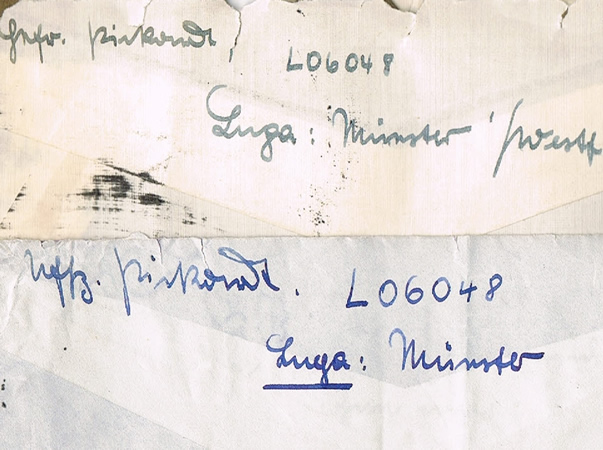 Gefr. Pickardt,
L06048
Luga: Münster /Westf
Uffz. Pickardt.
L06048
Luga: Münster